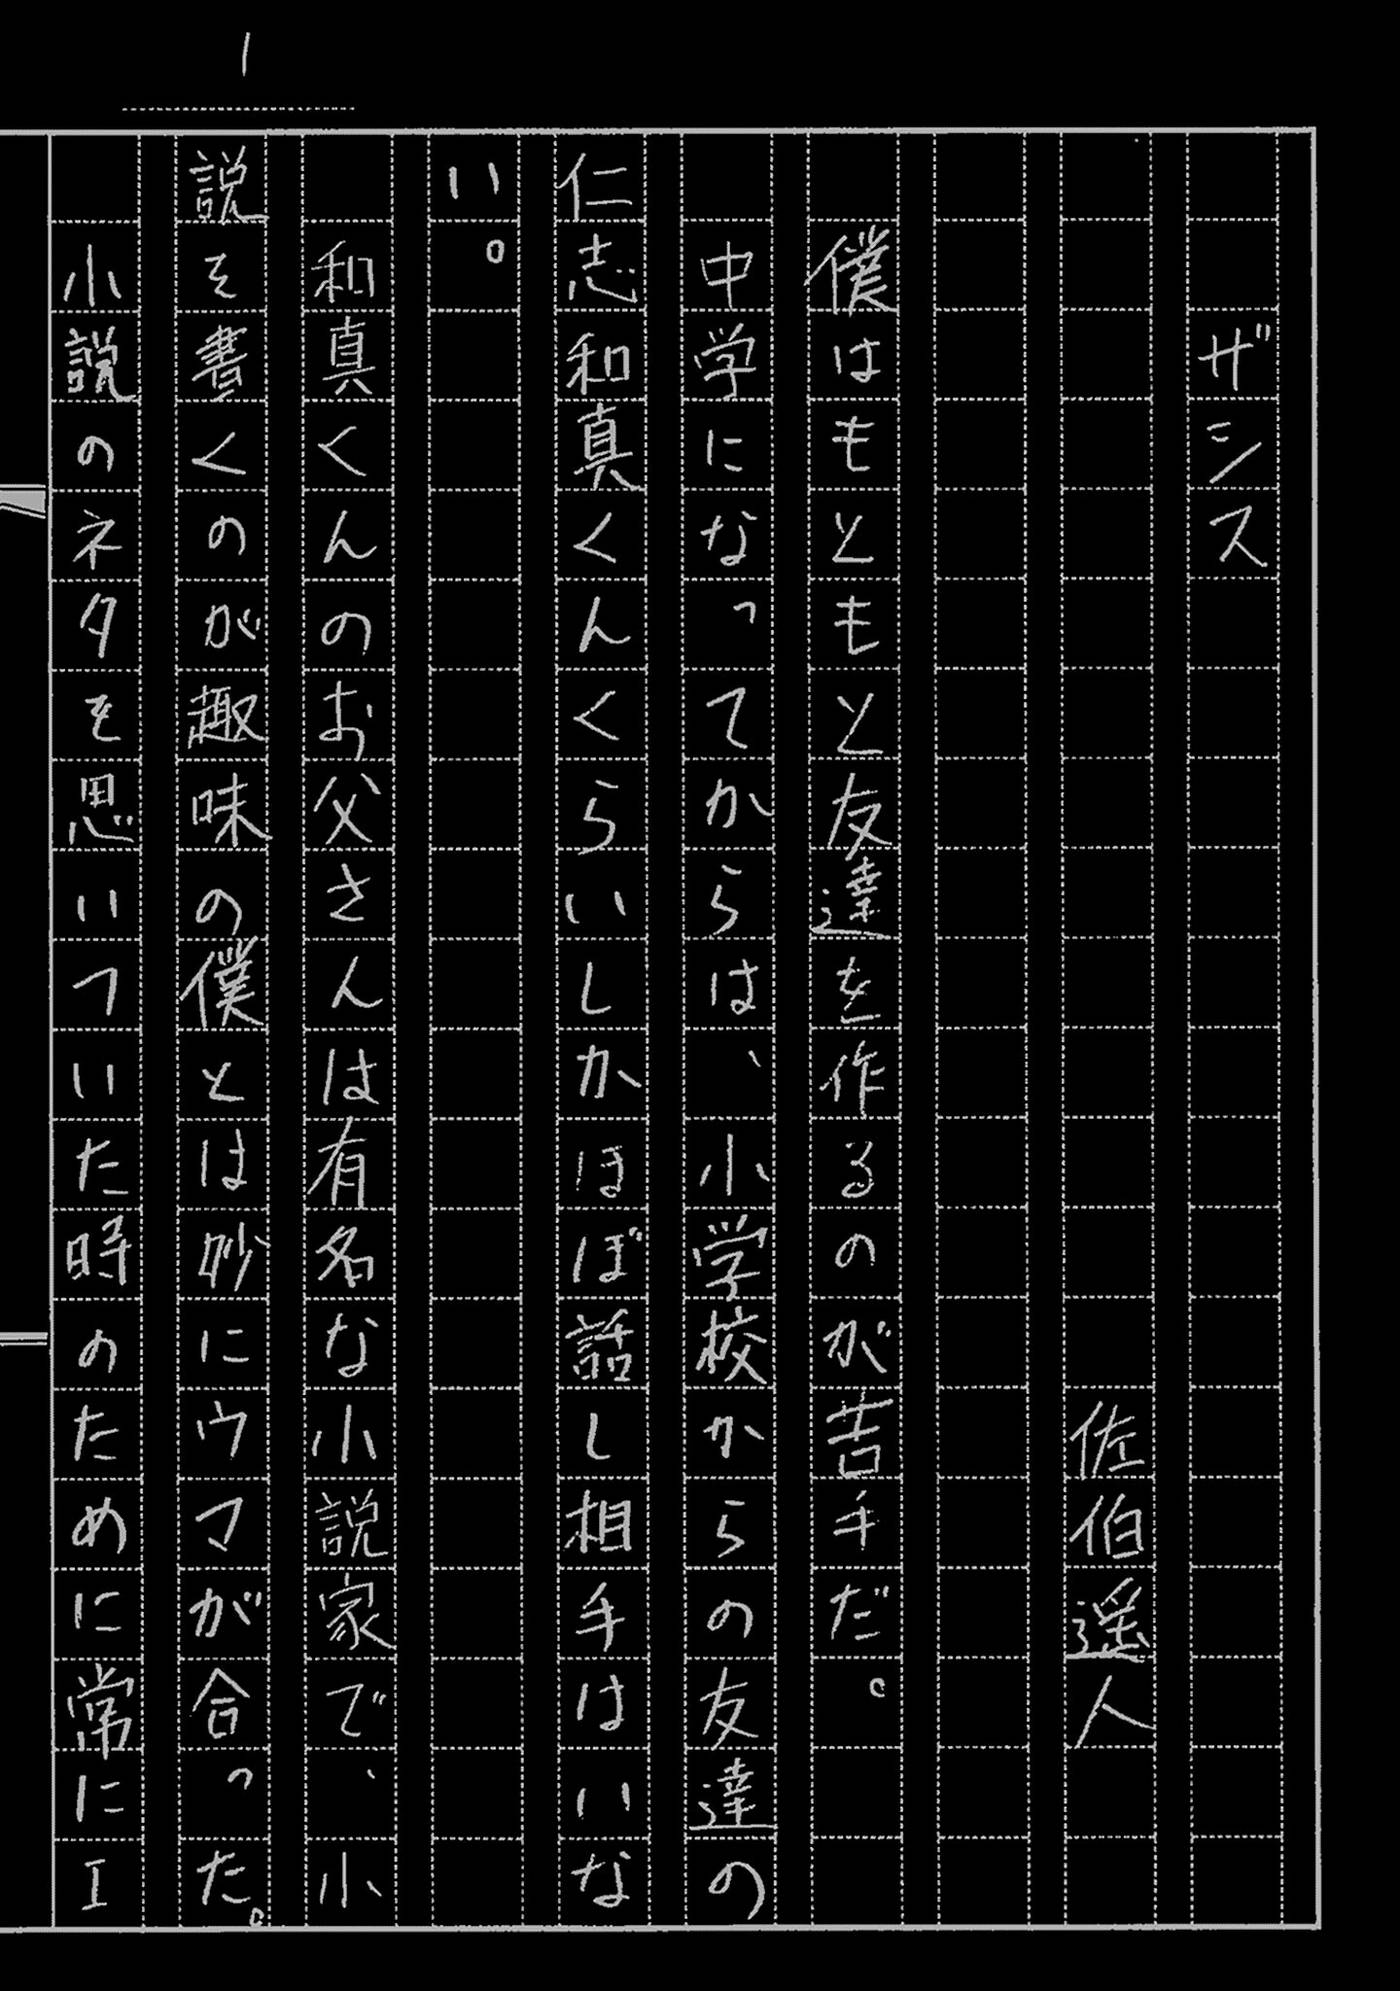 1
ザシス
佐伯遥人
僕はもともと友達を作るのが苦手だ。
中学になってからは、小学校からの友達の
仁志和真くんくらいしかほぼ話し相手はいな
い。
和真くんのお父さんは有名な小説家で、小
説を書くのが趣味の僕とは妙にウマが合った。
小説のネタを思いついた時のために常にエ